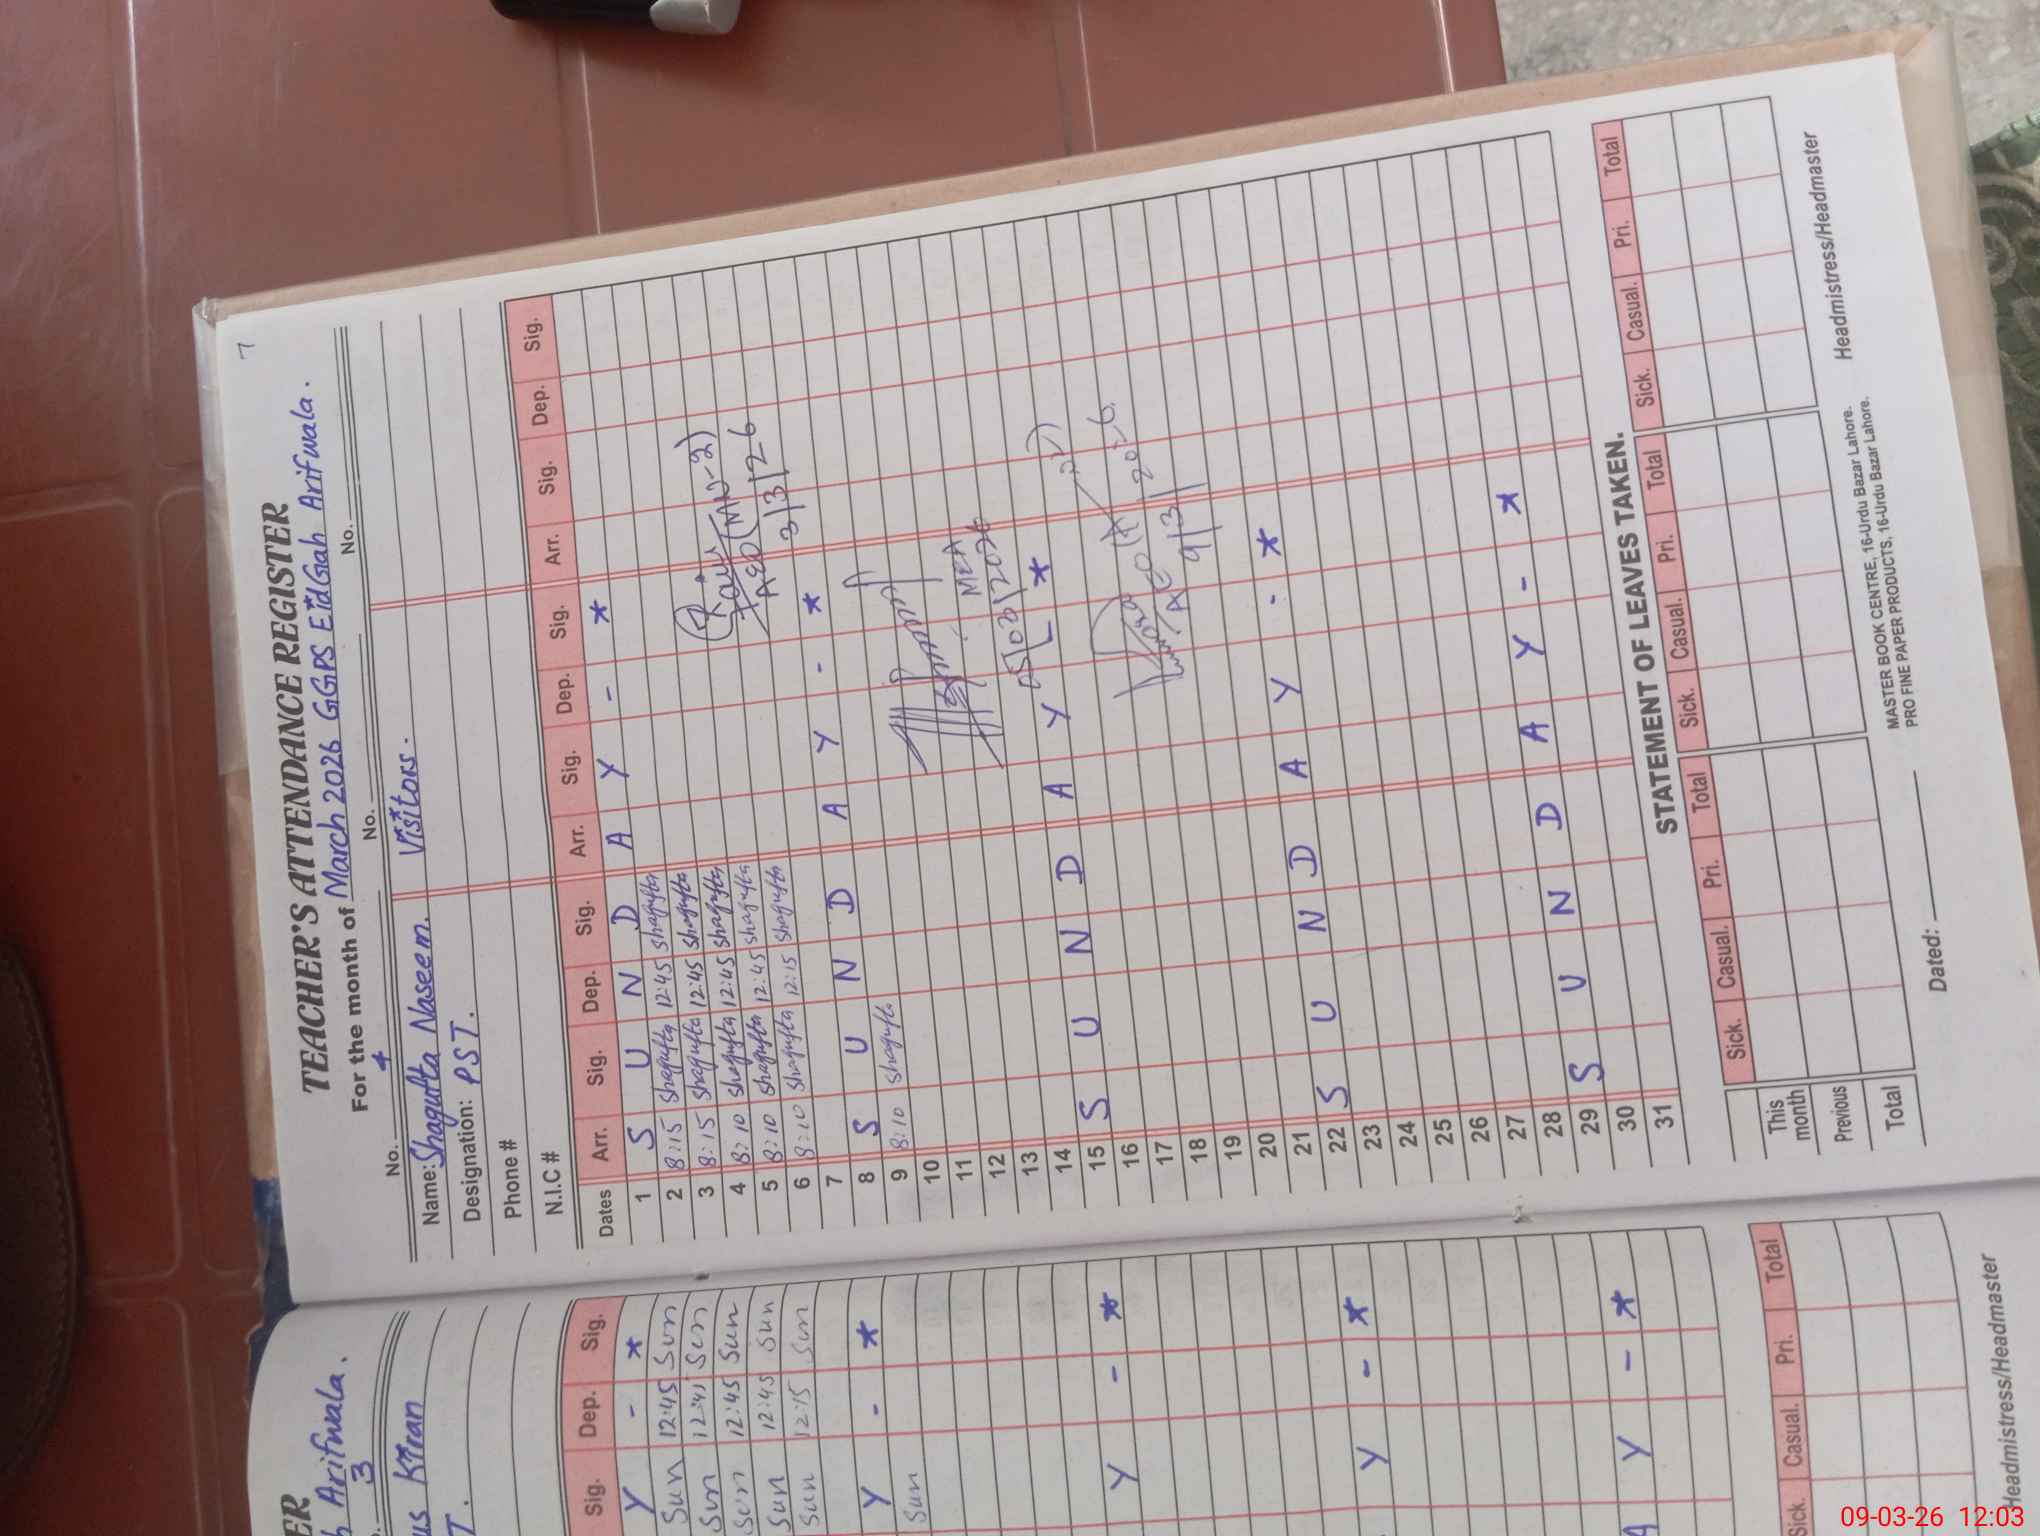 7
TEACHER'S ATTENDANCE REGISTER
For the month of March 2026 GGPS EidGah Arifwala.
No. 4 No. No.
Name: Shagufta Naseem. Visitors.
Designation: PST.
Phone #
N.I.C #
Dates Arr. Sig. Dep. Sig. Arr. Sig. Dep. Sig. Arr. Sig. Dep. Sig.
1 S U N D A Y - *
2 8:15 Shagufta 12:45 Shagufta
3 8:15 Shagufta 12:45 Shagufta
4 8:10 Shagufta 12:45 Shagufta
5 8:10 Shagufta 12:45 Shagufta
6 8:10 Shagufta 12:15 Shagufta
7
8 S U N D A Y - *
9 8:10 Shagufta
10
11
12
13
14
15 S U N D A Y - *
16
17
18
19
20
21
22 S U N D A Y - *
23
24
25
26
27
28
29 S U N D A Y - *
30
31
AEO (MN-2)
3/3/26
MEA
05/03/2026
AEO
9/3/2026
STATEMENT OF LEAVES TAKEN.
Sick. Casual. Pri. Total Sick. Casual. Pri. Total Sick. Casual. Pri. Total
This month
Previous
Total
MASTER BOOK CENTRE, 16-Urdu Bazar Lahore.
PRO FINE PAPER PRODUCTS, 16-Urdu Bazar Lahore.
Dated: Headmistress/Headmaster
Arifwala.
3
Kiran
Sig. Dep. Sig.
Y - *
Sun 12:45 Sun
Sun 12:45 Sun
Sun 12:45 Sun
Sun 12:45 Sun
Sun 12:15 Sun
Y - *
Sun
Y - *
Y - *
A Y - *
Sick. Casual. Pri. Total
Headmistress/Headmaster
09-03-26 12:03